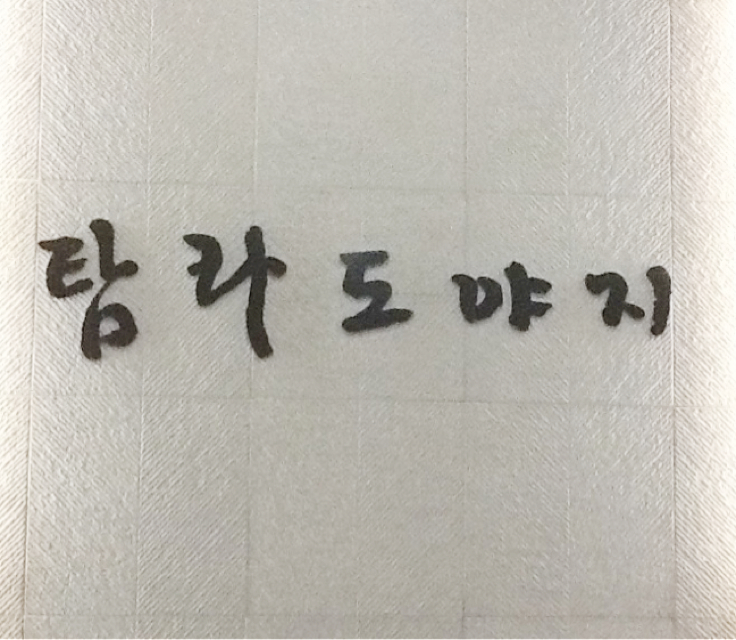 탐라도야지